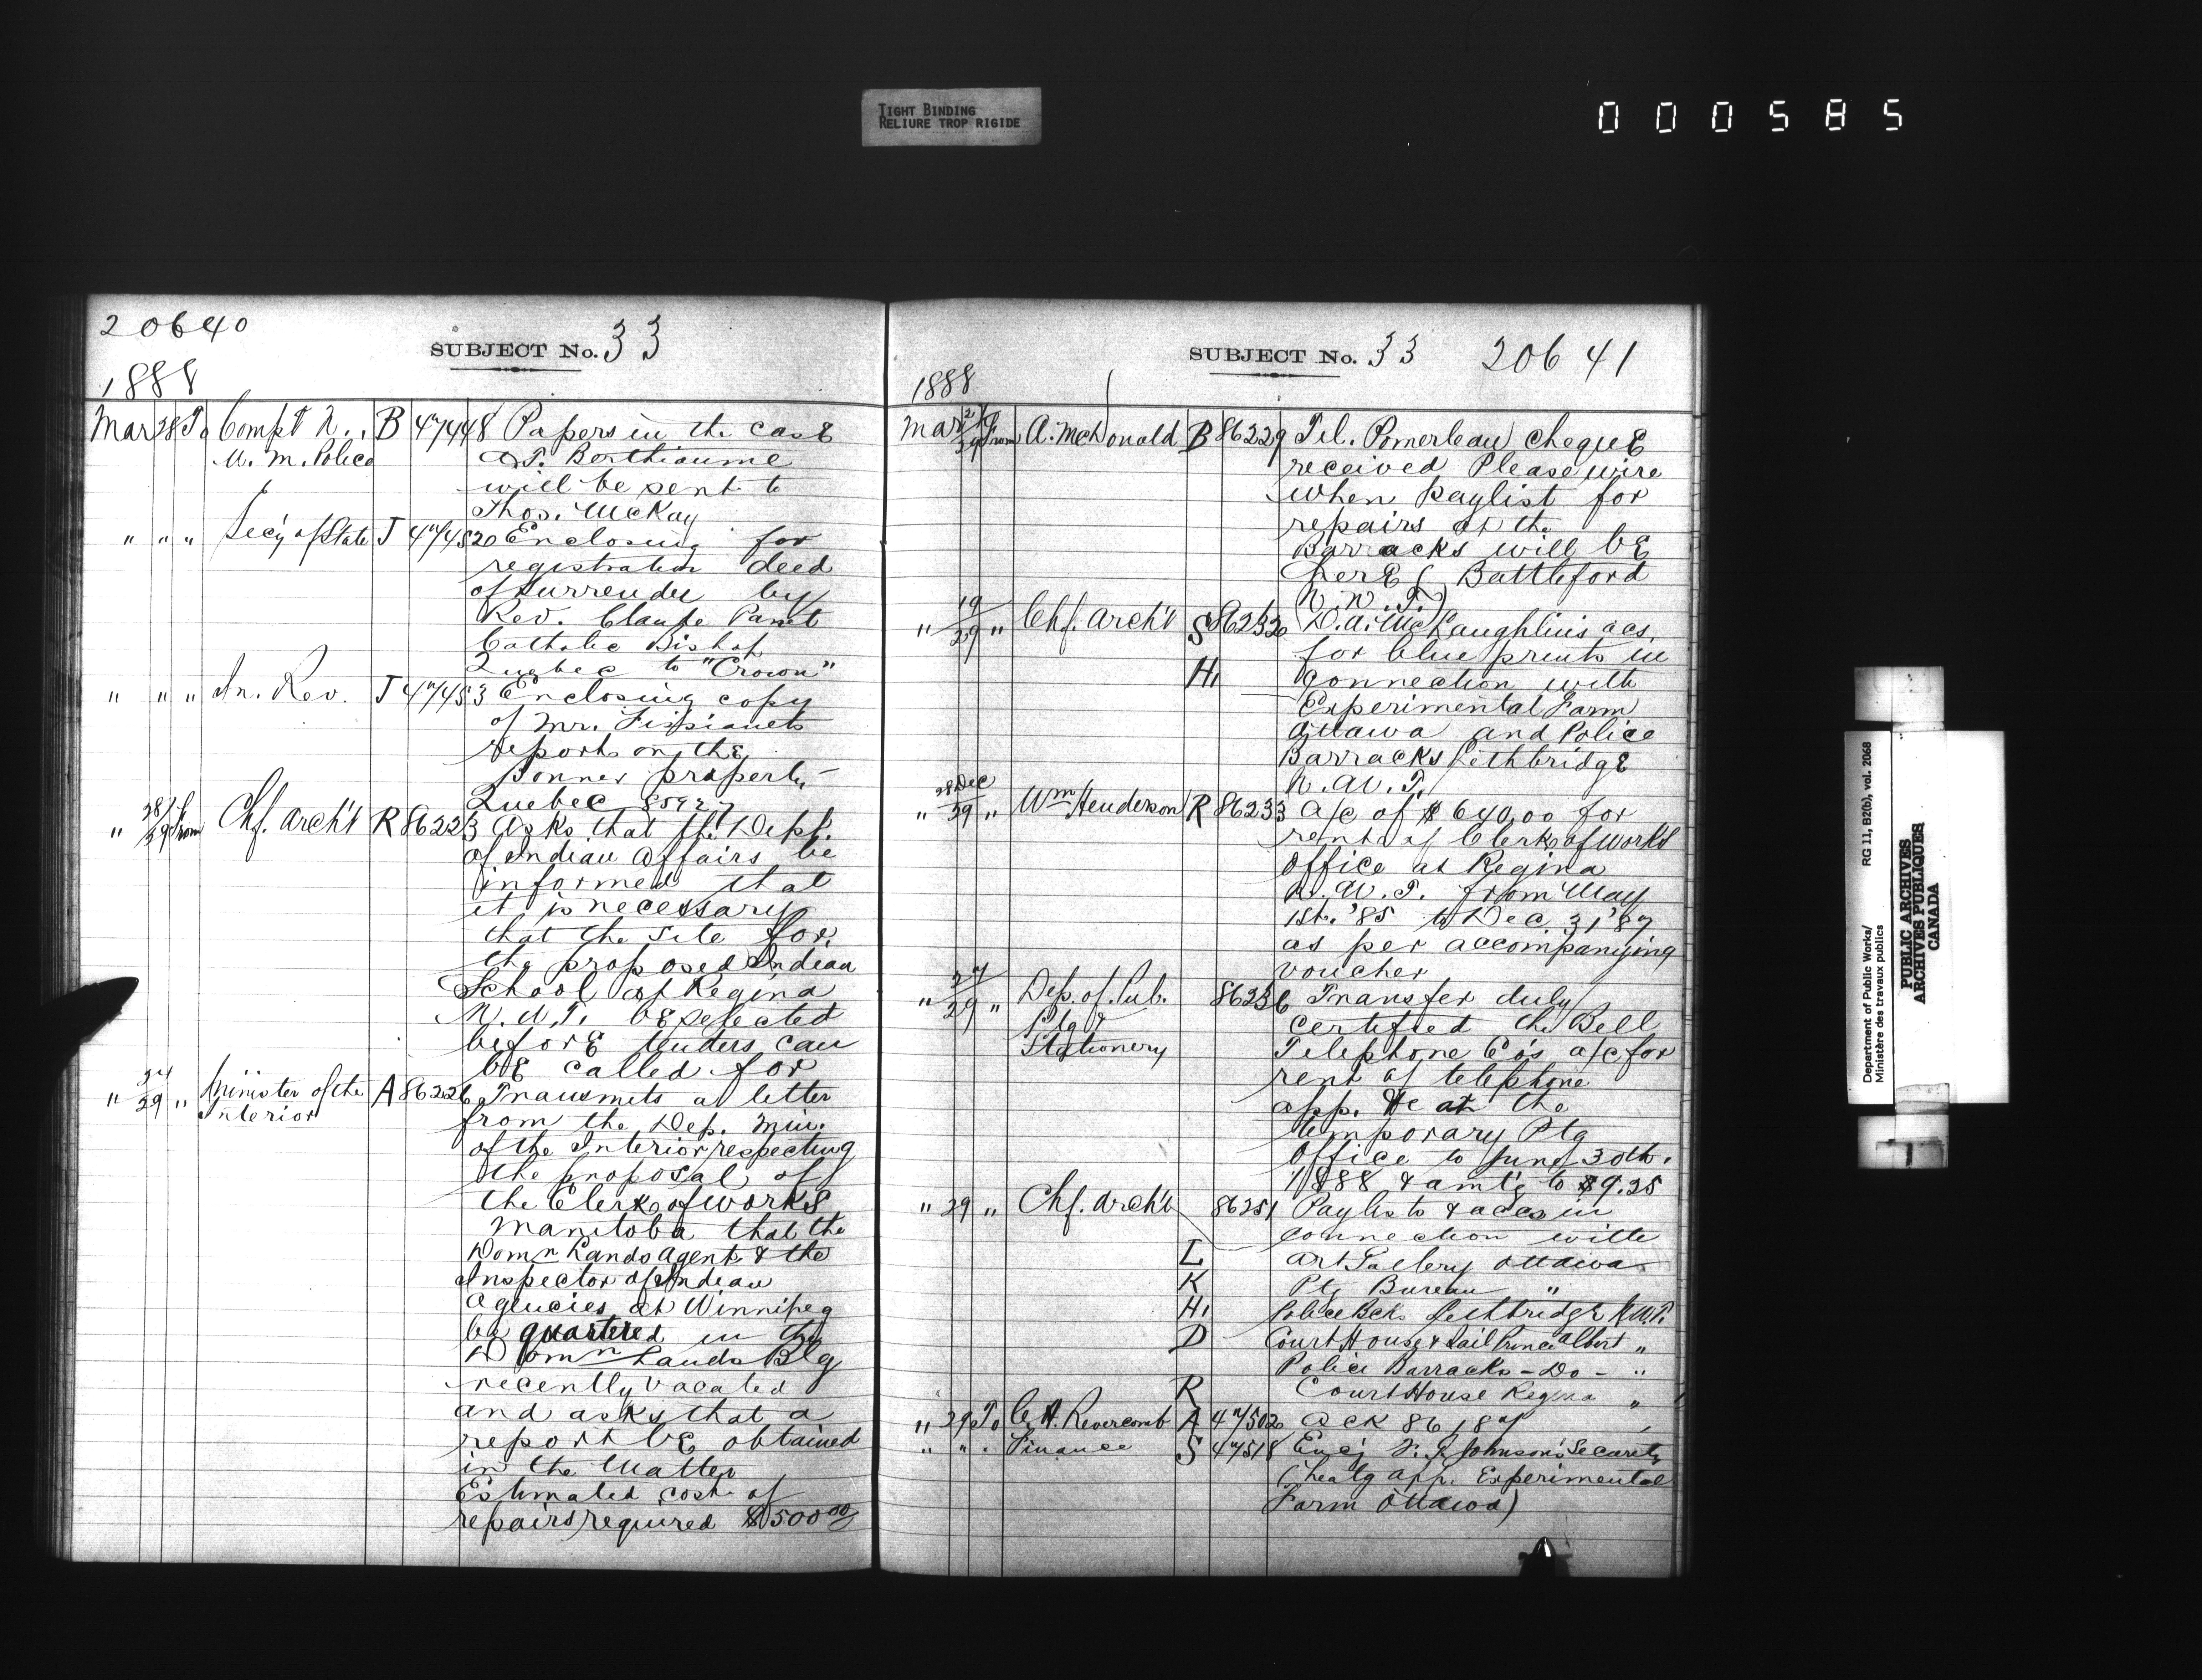 TIGHT BINDING
RELIURE TROP RIGIDE
000585
20640
SUBJECT No. 33
1888
Mar 28 To Compt N. B 47448 Papers in the case
W. M. Police of T. Berthiaume
will be sent to
Thos. McKay
" " " Sec'y of State J 47452 Enclosing for
registration deed
of surrender by
Rev. Claude Panet
Catholic Bishop
Quebec to "Crown"
" " " In. Rev. J 47453 Enclosing copy
of Mr.
report on the
Bonner property
Quebec 85927
" 28/29 From Chf. Arch't R 86223 Asks that the Dept.
of Indian Affairs be
informed that
it is necessary
that the site for
the proposed Indian
School at Regina
N.W.T. be selected
before tenders can
be called for
" 27/29 " Minister of the A 86226 Transmits a letter
Interior from the Dep. Min.
of the Interior respecting
the proposal of
the Clerk of works
Manitoba that the
Domn Lands Agent & the
Inspector of Indian
Agencies at Winnipeg
be quartered in the
Domn Lands Blg
recently vacated
and asks that a
report be obtained
in the matter
Estimated cost of
repairs required $500 00
SUBJECT No. 33 20641
1888
Mar 27/29 From A. McDonald B 86229 Tel. Pomerleau cheque
received Please wire
when paylist for
repairs at the
Barracks will be
here (Battleford
N.W.T.)
" 19/29 " Chf. Arch't S 86232 D.A. McLaughlin's acs.
for blue prints in
H. connection with
Experimental Farm
Ottawa and Police
Barracks Lethbridge
N.W.T.
" 28 Dec/29 " Wm Henderson R 86233 a/c of $640.00 for
rent of Clerk of works
Office at Regina
N.W.T. from May
1st. '85 to Dec. 31 '87
as per accompanying
voucher
" 27/29 " Dep. of Pub. 86236 Transfer duly
Ptg & certified the Bell
Stationery Telephone Co's a/c for
rent of telephone
app. &c at the
temporary Ptg
Office to June 30th.
1888 & amt'g to $9.25
" 29 " Chf. Arch't 86251 Paylists & accs in
connection with
L Art Gallery Ottawa
K Ptg Bureau "
H. Police Bcks Lethbridge N.W.T.
D Court House & Jail Prince Albert "
Police Barracks - Do - "
R Court House Regina "
" 29 To C. A. Revercomb A 47502 Ack 86187
" " . Finance S 47518 Enc'g Johnson's Security
(heatg app. Experimental
Farm Ottawa)
Department of Public Works/
Ministère des travaux publics
RG 11, B2(b), vol. 2068
PUBLIC ARCHIVES
ARCHIVES PUBLIQUES
CANADA